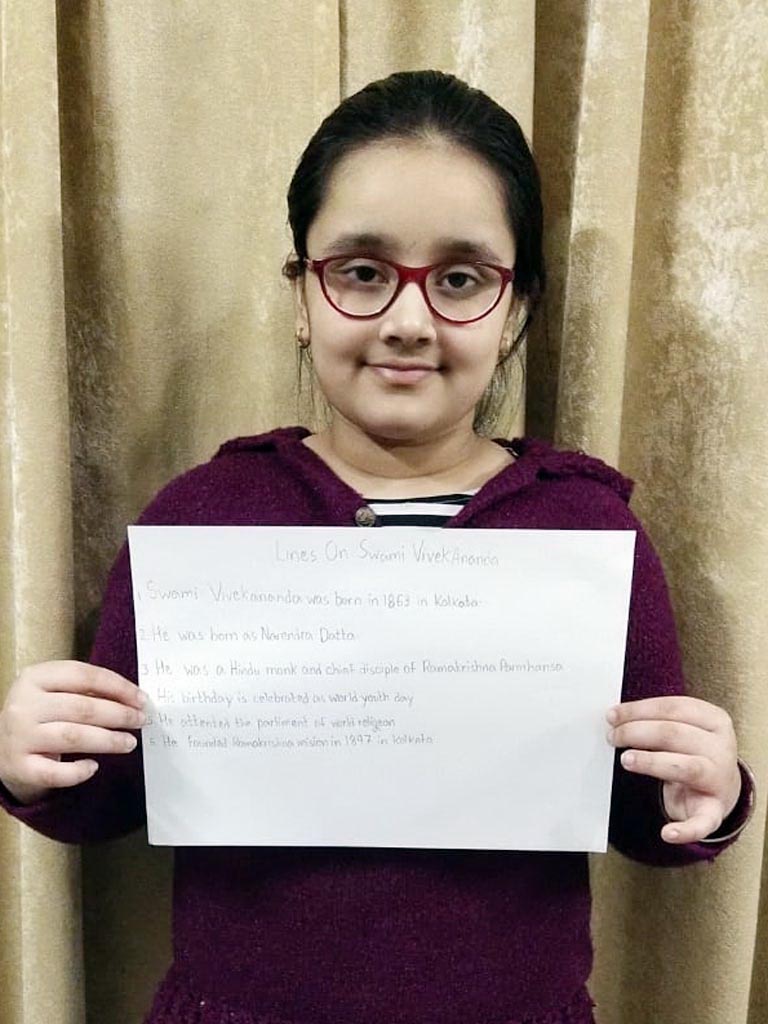 Lines On Swami VivekAnanda
1. Swami Vivekananda was born in 1863 in Kolkata.
2. He was born as Narendra Datta
3. He was a Hindu monk and chief disciple of Ramakrishna Parmhansa
His birthday is celebrated as world youth day
5. He attented the parliment of world religean
6. He Founded Ramakrishna mision in 1897 in Kolkata